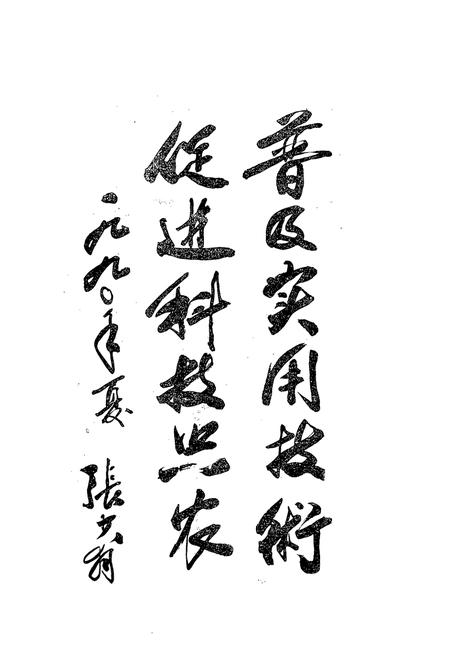 普及实用技術
促进科技兴农
一九九〇年夏 張